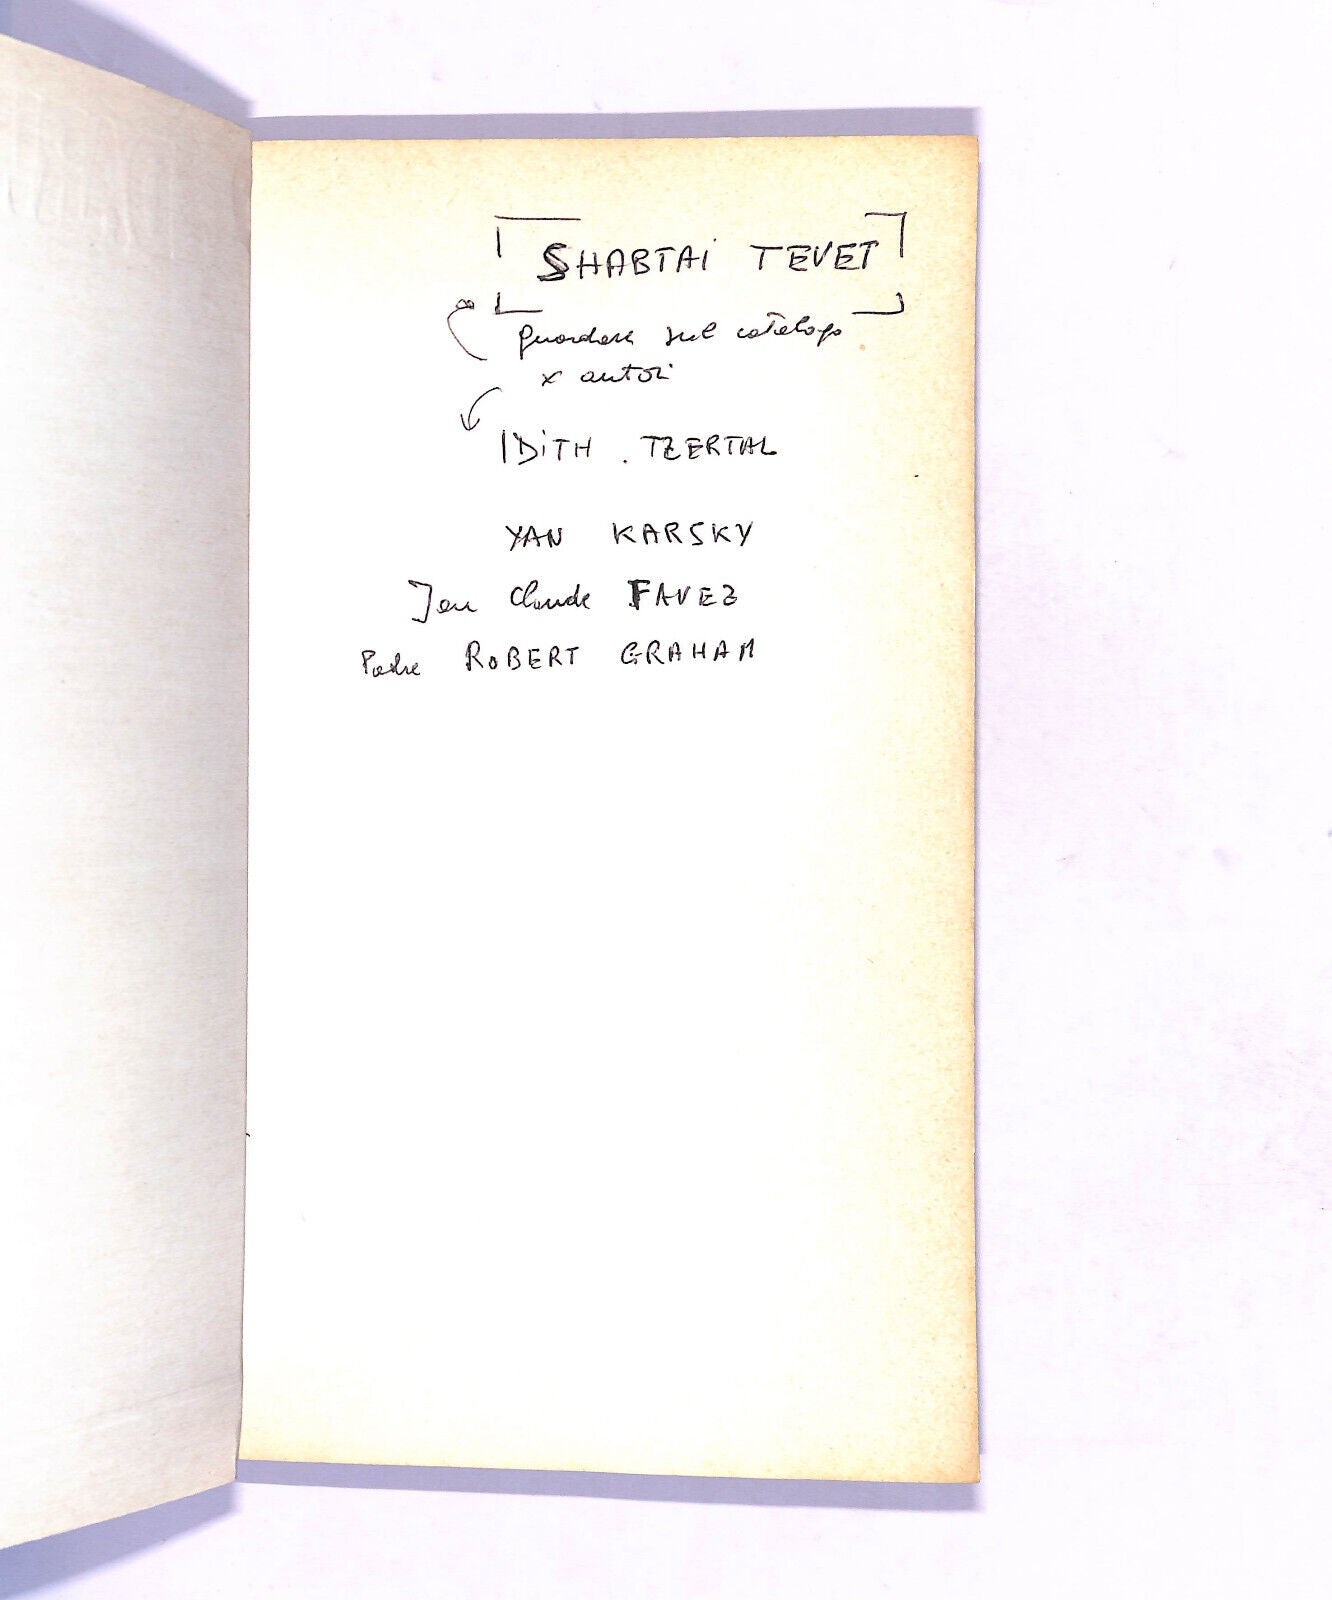 SHABTAI TEVET
guardare sul catalogo
x autori
IDITH . TZERTAL
YAN KARSKY
Jean Claude FAVEZ
Padre ROBERT GRAHAM